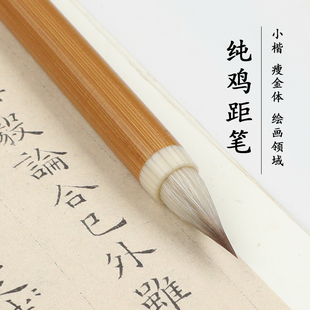 小楷 瘦金体 绘画领域
纯鸡距笔
毅論合巳外雖